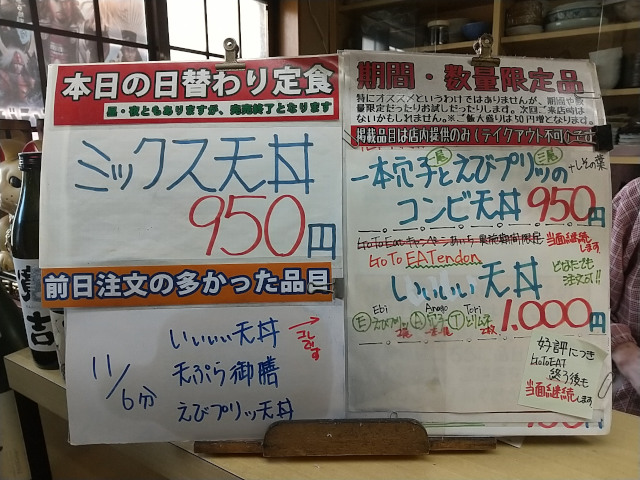 本日の日替わり定食
昼・夜ともありますが、売切終了となります
ミックス天丼
950円
前日注文の多かった品目
11/6分
いいいい天丼
コレです
天ぷら御膳
えびプリッ天丼
期間・数量限定品
特にオススメというわけではありませんが、期間や数
量限定だったりお試しだったりします。次回ご来店時は
ないかもしれません。※ご飯大盛りは50円増となります。
掲載品目は店内提供のみ(テイクアウト不可)です
一本穴子とえびプリッの
一尾
三尾
+しその葉
コンビ天丼 950円
当面継続します
GoTo EATendon
いいいい天丼
どなたでも
注文可!!
Ebi Anago Tori
Eえびプリッ Aアナゴ Tとりムネ
1.000円
好評につき
GoToEAT
終了後も
当面継続します